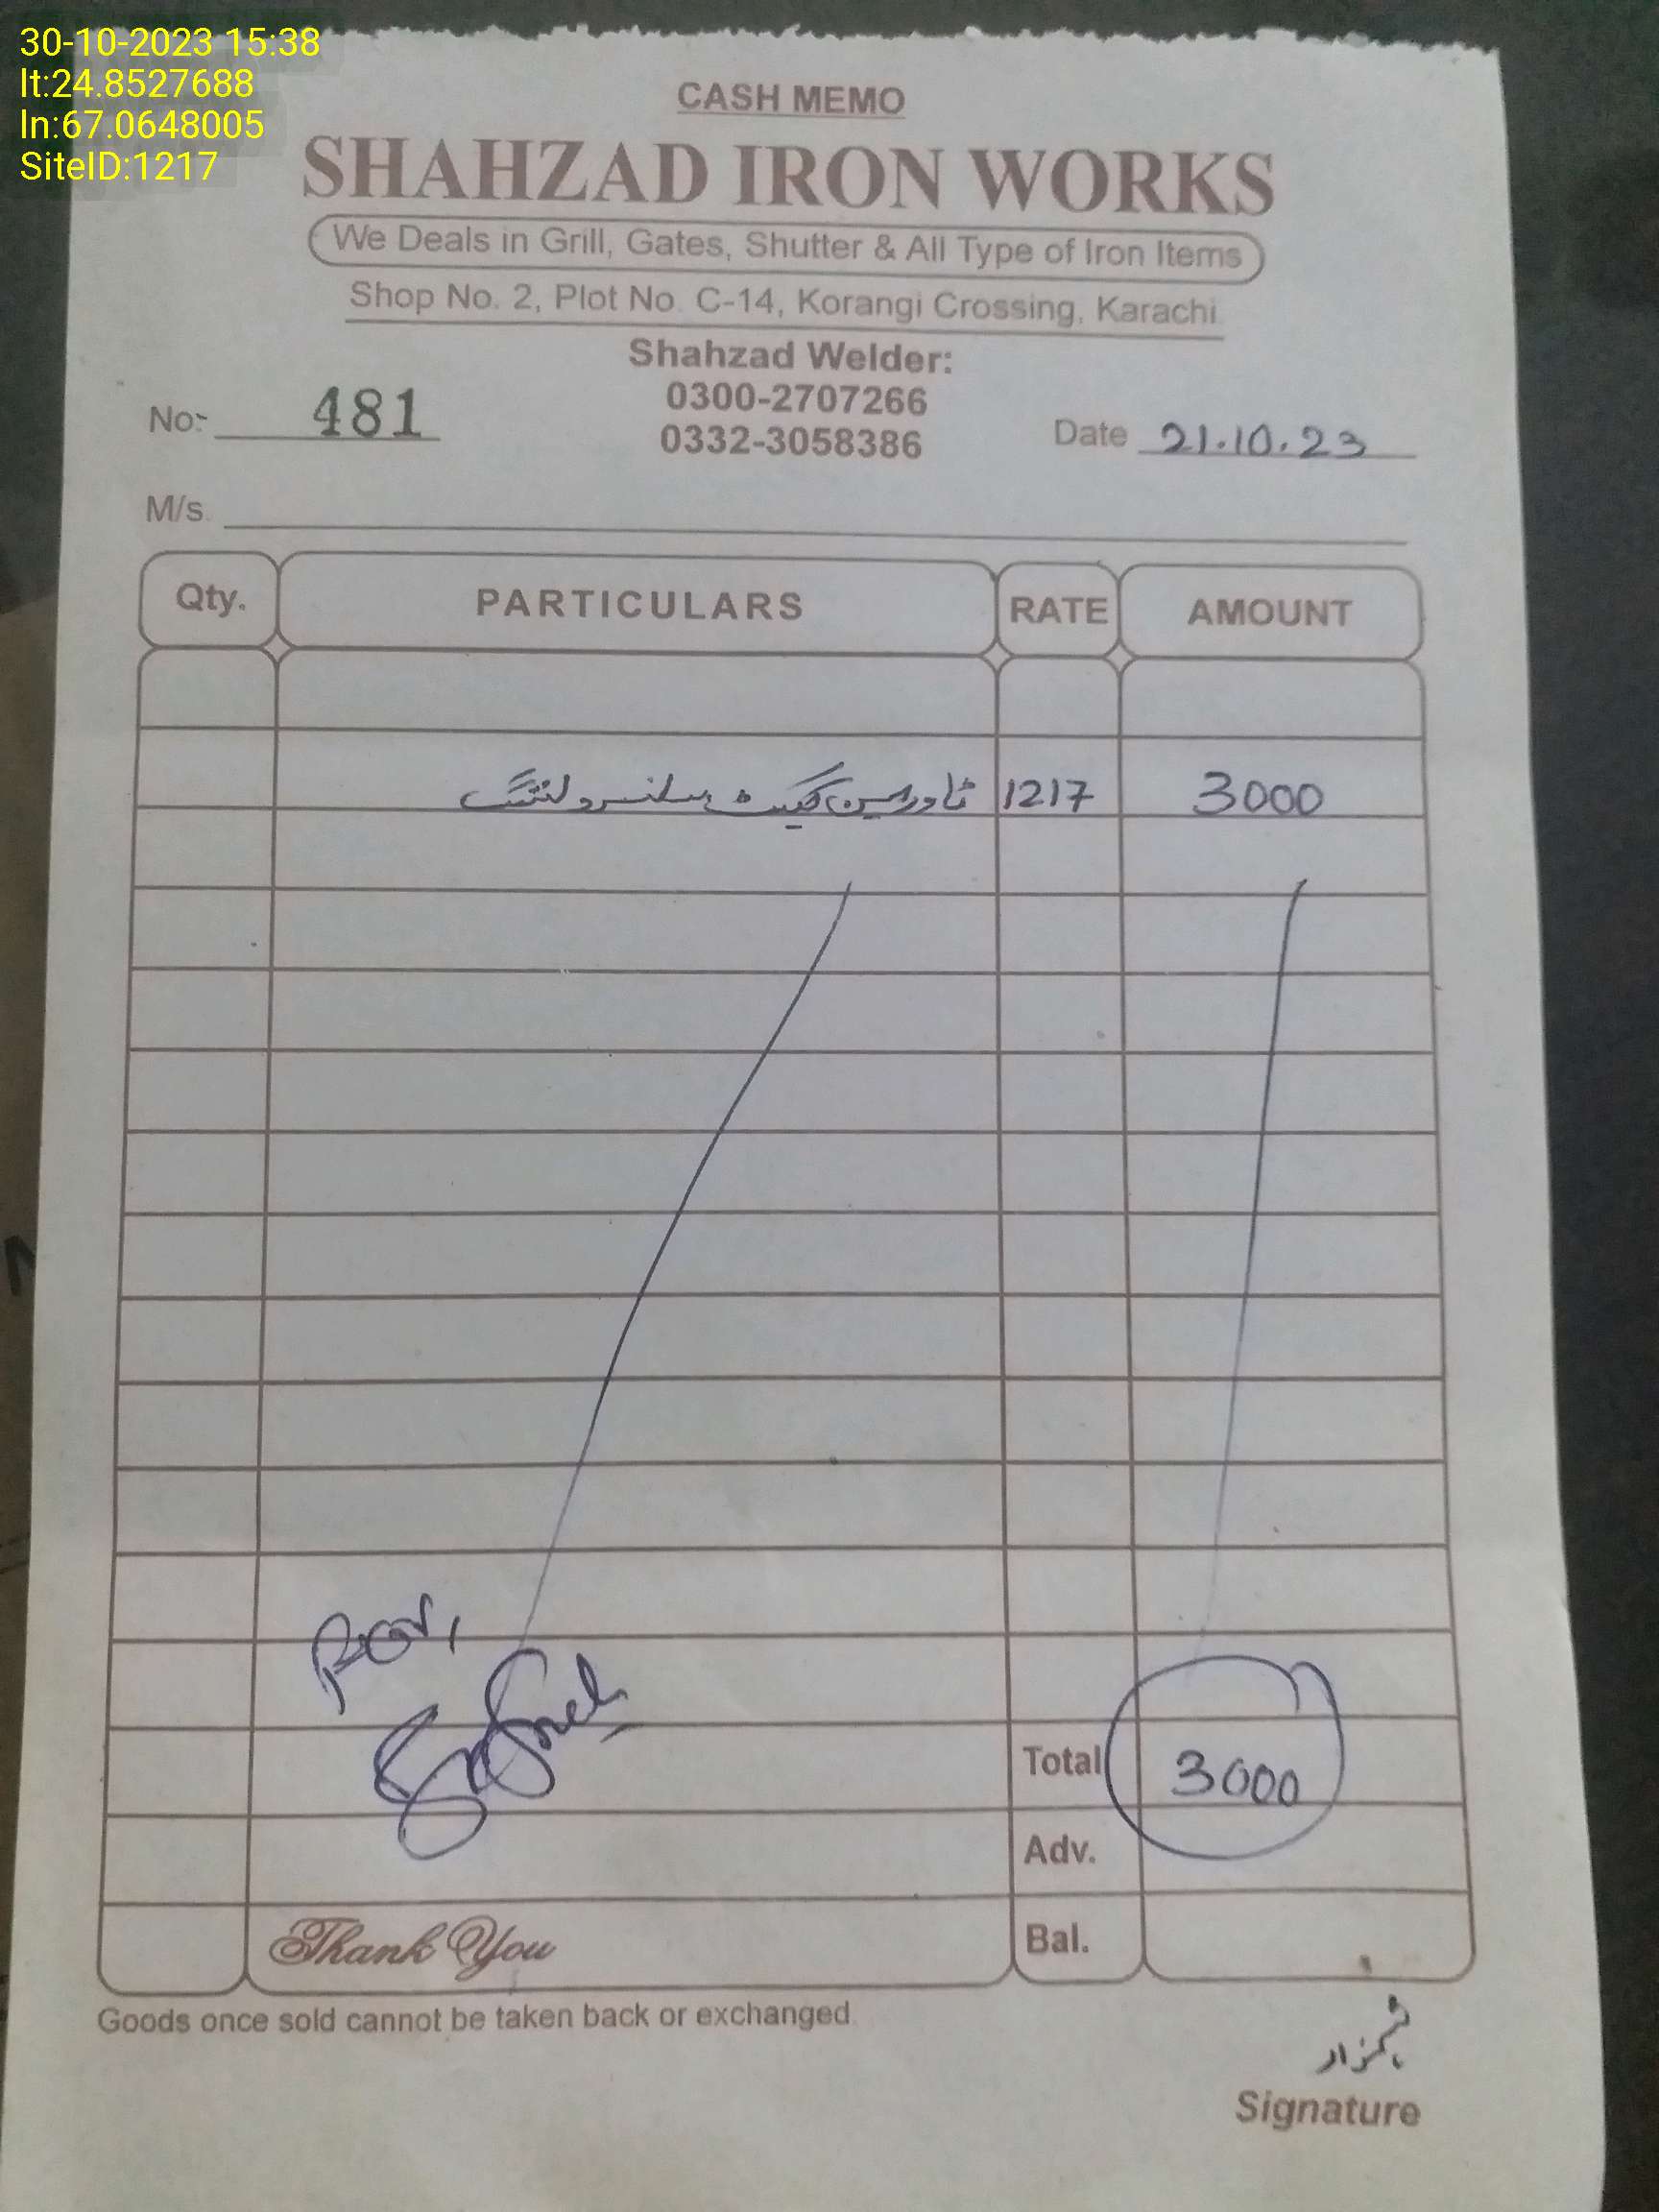 30-10-2023 15:38
lt:24.8527688
ln:67.0648005
SiteID:1217
CASH MEMO
SHAHZAD IRON WORKS
We Deals in Grill, Gates, Shutter & All Type of Iron Items
Shop No. 2, Plot No. C-14, Korangi Crossing, Karachi.
Shahzad Welder:
0300-2707266
0332-3058386
No:- 481
Date 21.10.23
M/s.
Qty. PARTICULARS RATE AMOUNT
ٹاور مین گیٹ 1217 3000
Total 3000
Adv.
Bal.
Thank You
Goods once sold cannot be taken back or exchanged.
شہزاد
Signature